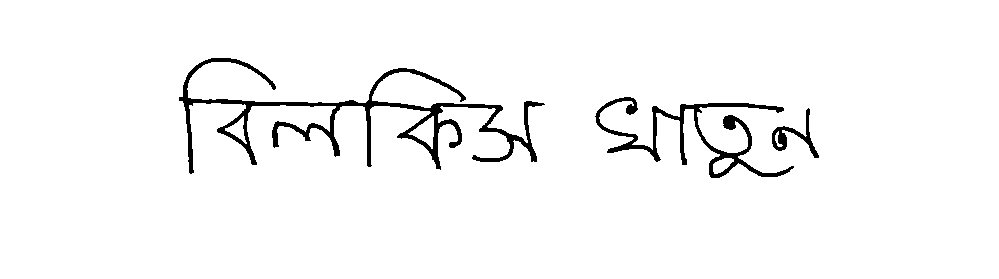 বিলকিস খাতুন